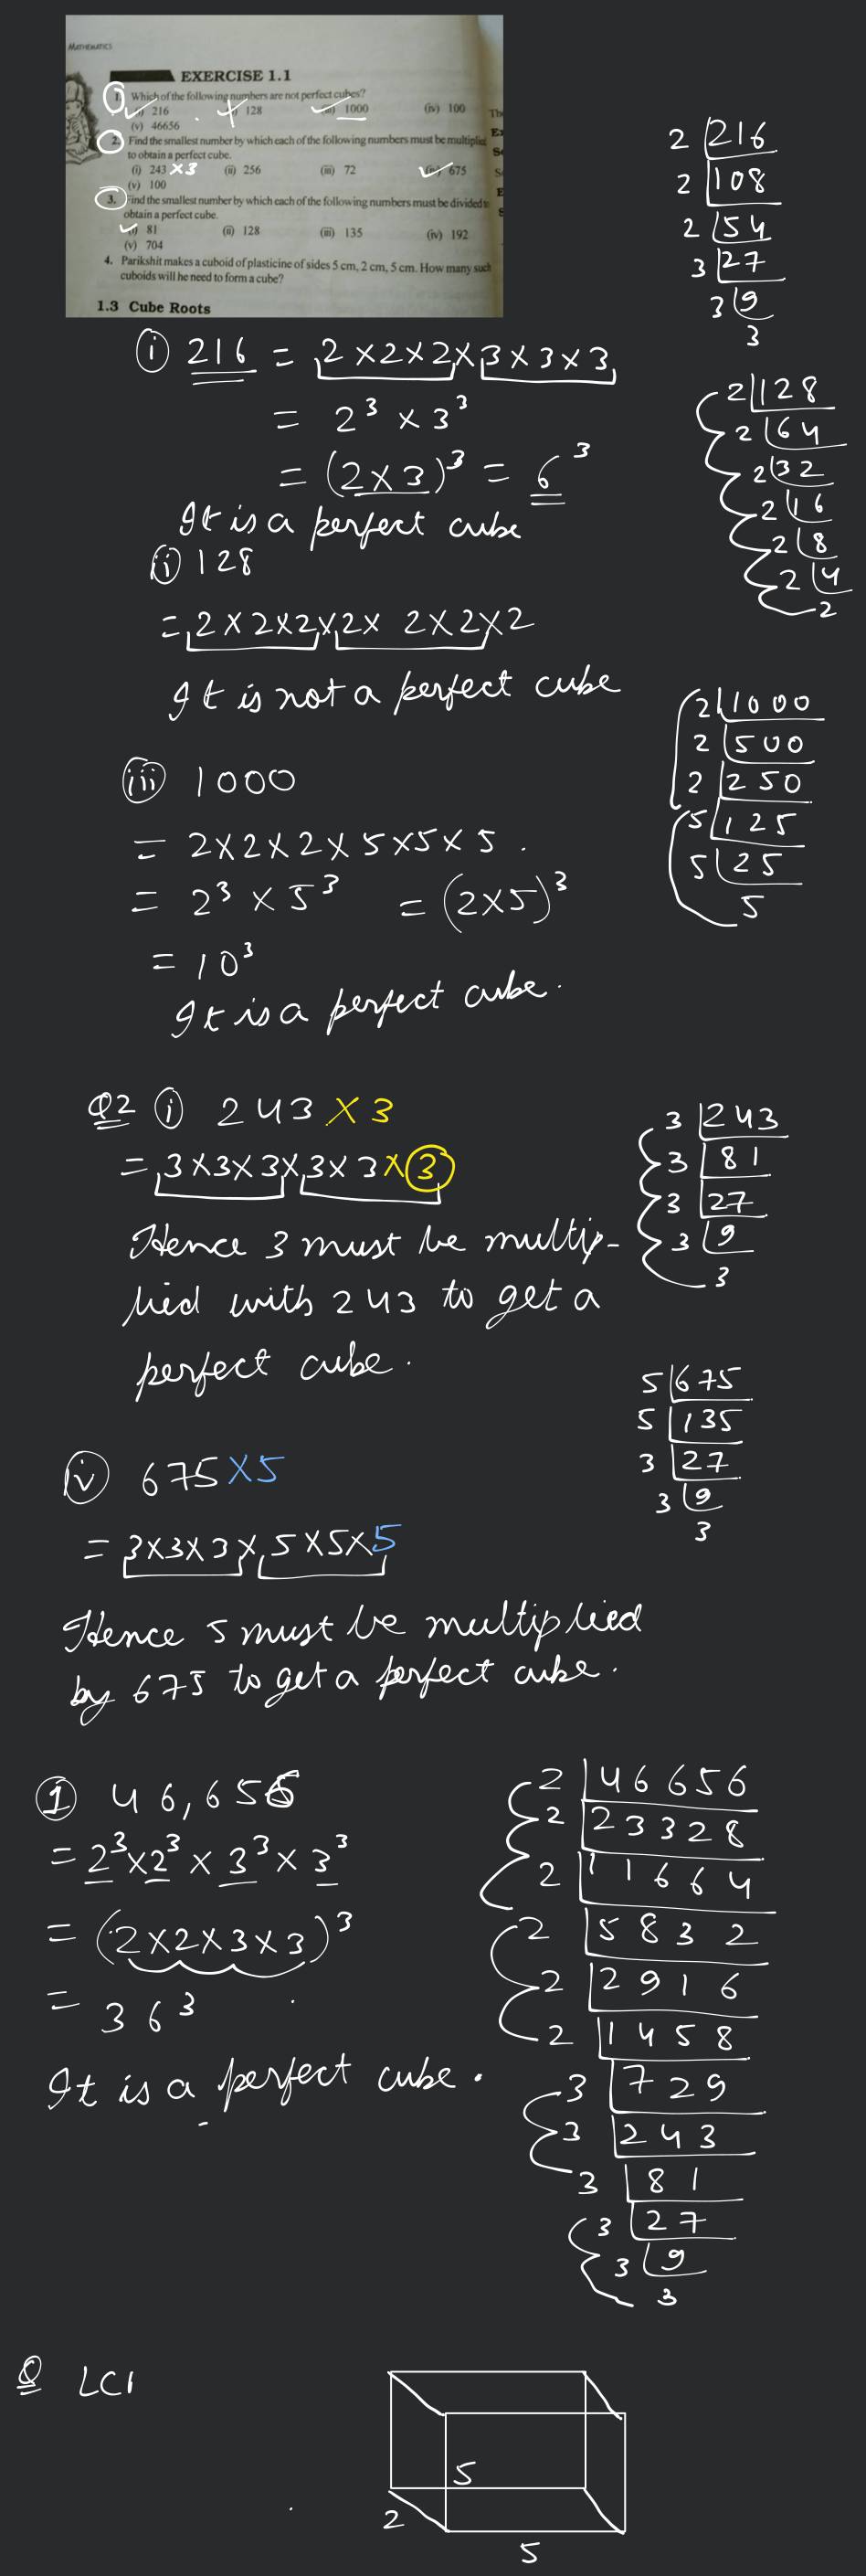 MATHEMATICS
EXERCISE 1.1
1. Which of the following numbers are not perfect cubes?
(i) 216 (ii) 128 (iii) 1000 (iv) 100
(v) 46656
2. Find the smallest number by which each of the following numbers must be multiplied
to obtain a perfect cube.
(i) 243 ×3 (ii) 256 (iii) 72 (iv) 675
(v) 100
3. Find the smallest number by which each of the following numbers must be divided to
obtain a perfect cube.
(i) 81 (ii) 128 (iii) 135 (iv) 192
(v) 704
4. Parikshit makes a cuboid of plasticine of sides 5 cm, 2 cm, 5 cm. How many such
cuboids will he need to form a cube?
1.3 Cube Roots
2 216
2 108
2 54
3 27
3 9
3
(i) 216 = 2×2×2×3×3×3
= 2³ × 3³
= (2×3)³ = 6³
It is a perfect cube
2 128
2 64
2 32
2 16
2 8
2 4
2
(ii) 128
= 2×2×2×2×2×2×2
It is not a perfect cube
2 1000
2 500
2 250
5 125
5 25
5
(iii) 1000
= 2×2×2×5×5×5.
= 2³ × 5³ = (2×5)³
= 10³
It is a perfect cube.
Q2 (i) 243 × 3
= 3×3×3×3×3×3
Hence 3 must be multip-
lied with 243 to get a
perfect cube.
3 243
3 81
3 27
3 9
3
5 675
5 135
3 27
3 9
3
(iv) 675 ×5
= 3×3×3×5×5×5
Hence 5 must be multiplied
by 675 to get a perfect cube.
(1) 46,656
= 2³×2³×3³×3³
= (2×2×3×3)³
= 36³
It is a perfect cube.
2 46656
2 23328
2 11664
2 5832
2 2916
2 1458
3 729
3 243
3 81
3 27
3 9
3
Q LCI
5
2
5